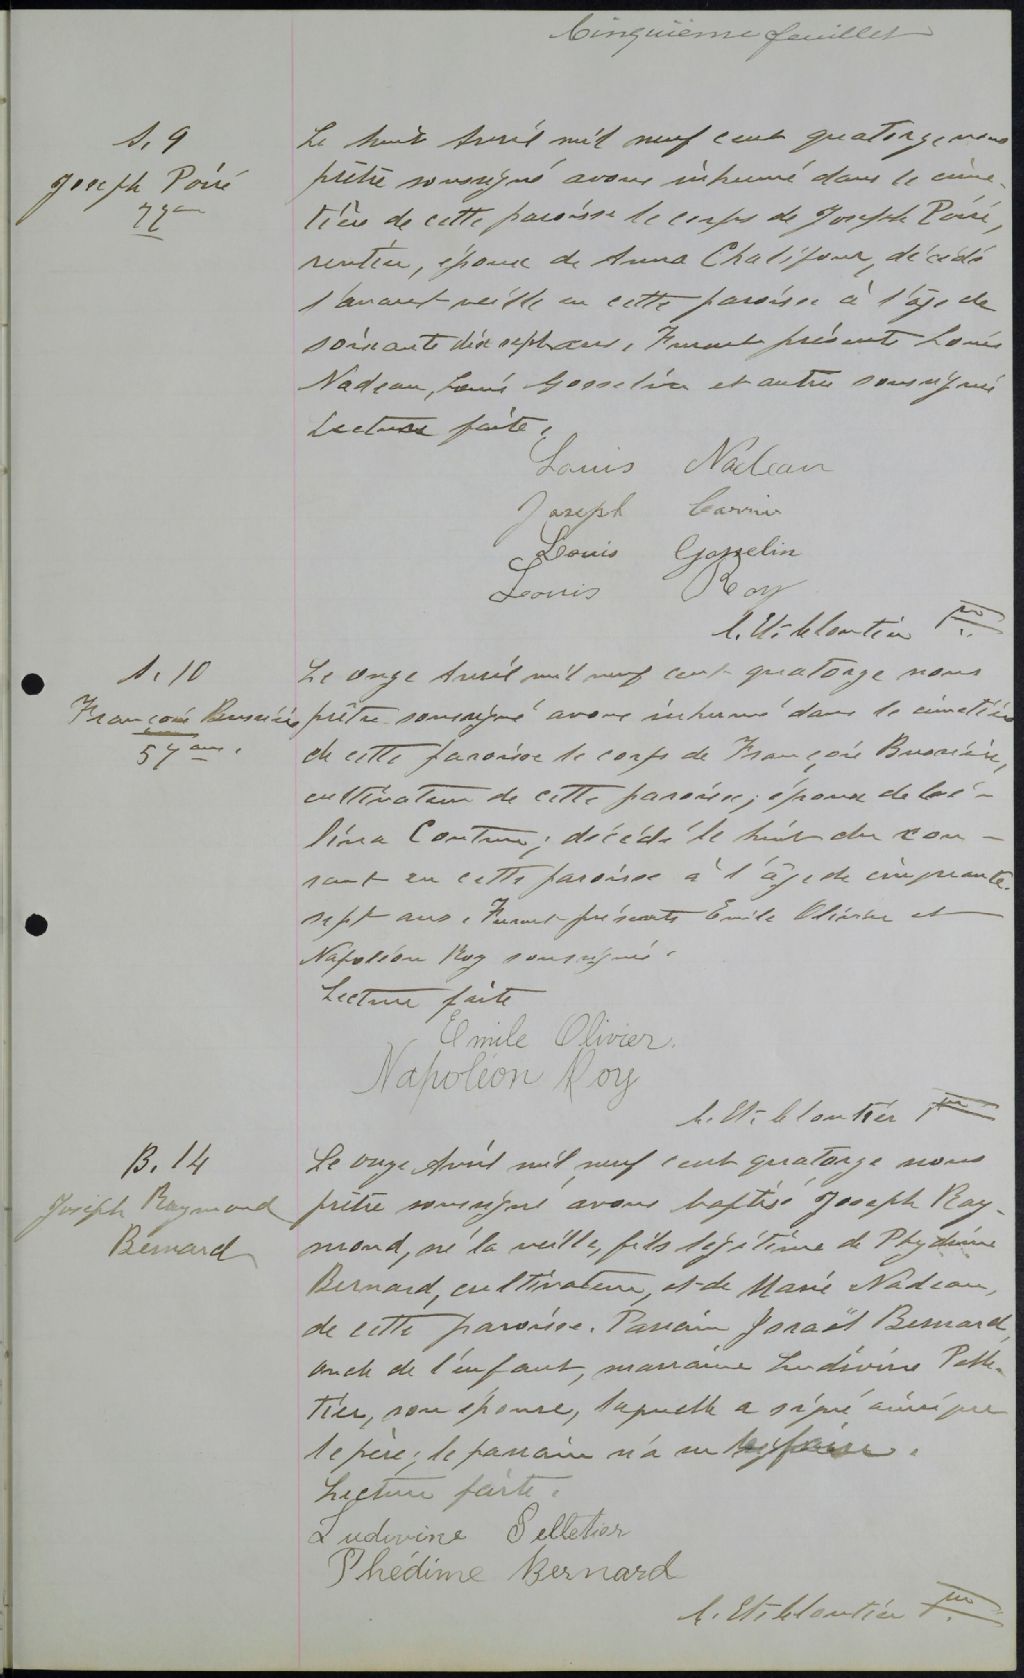 Cinquième feuillet
S. 9
Joseph Poiré
77 ans
Le huit Avril mil neuf cent quatorze nous
prêtre soussigné avons inhumé dans le cime-
tière de cette paroisse le corps de Joseph Poiré,
rentier, époux de Anna Chalifour, décédé
l'avant veille en cette paroisse à l'âge de
soixante dix sept ans. Furent présents Louis
Nadeau, Louis Gosselin et autres soussignés
Lecture faite.
Louis Nadeau
Joseph
Louis Gosselin
Louis Roy
Et. Cloutier Ptre
S. 10
François Bussière
57 ans.
Le onze Avril mil neuf cent quatorze nous
prêtre soussigné avons inhumé dans le cimetière
de cette paroisse le corps de François Bussière,
cultivateur de cette paroisse, époux de
Couture; décédé le huit du cou-
rant en cette paroisse à l'âge de cinquante-
sept ans. Furent présents Emile Olivier et
Napoléon Roy soussignés.
Lecture faite
Emile Olivier.
Napoléon Roy
Et. Cloutier Ptre
B. 14
Joseph Raymond
Bernard
Le onze Avril mil neuf cent quatorze nous
prêtre soussigné avons baptisé Joseph Ray-
mond, né la veille, fils légitime de Phydime
Bernard, cultivateur, et de Marie Nadeau,
de cette paroisse. Parrain Israël Bernard,
oncle de l'enfant, marraine Ludivine Pelle-
tier, son épouse, laquelle a signé ainsi que
le père; le parrain n'a su le faire.
Lecture faite.
Ludivine Pelletier
Phédime Bernard
Et. Cloutier Ptre